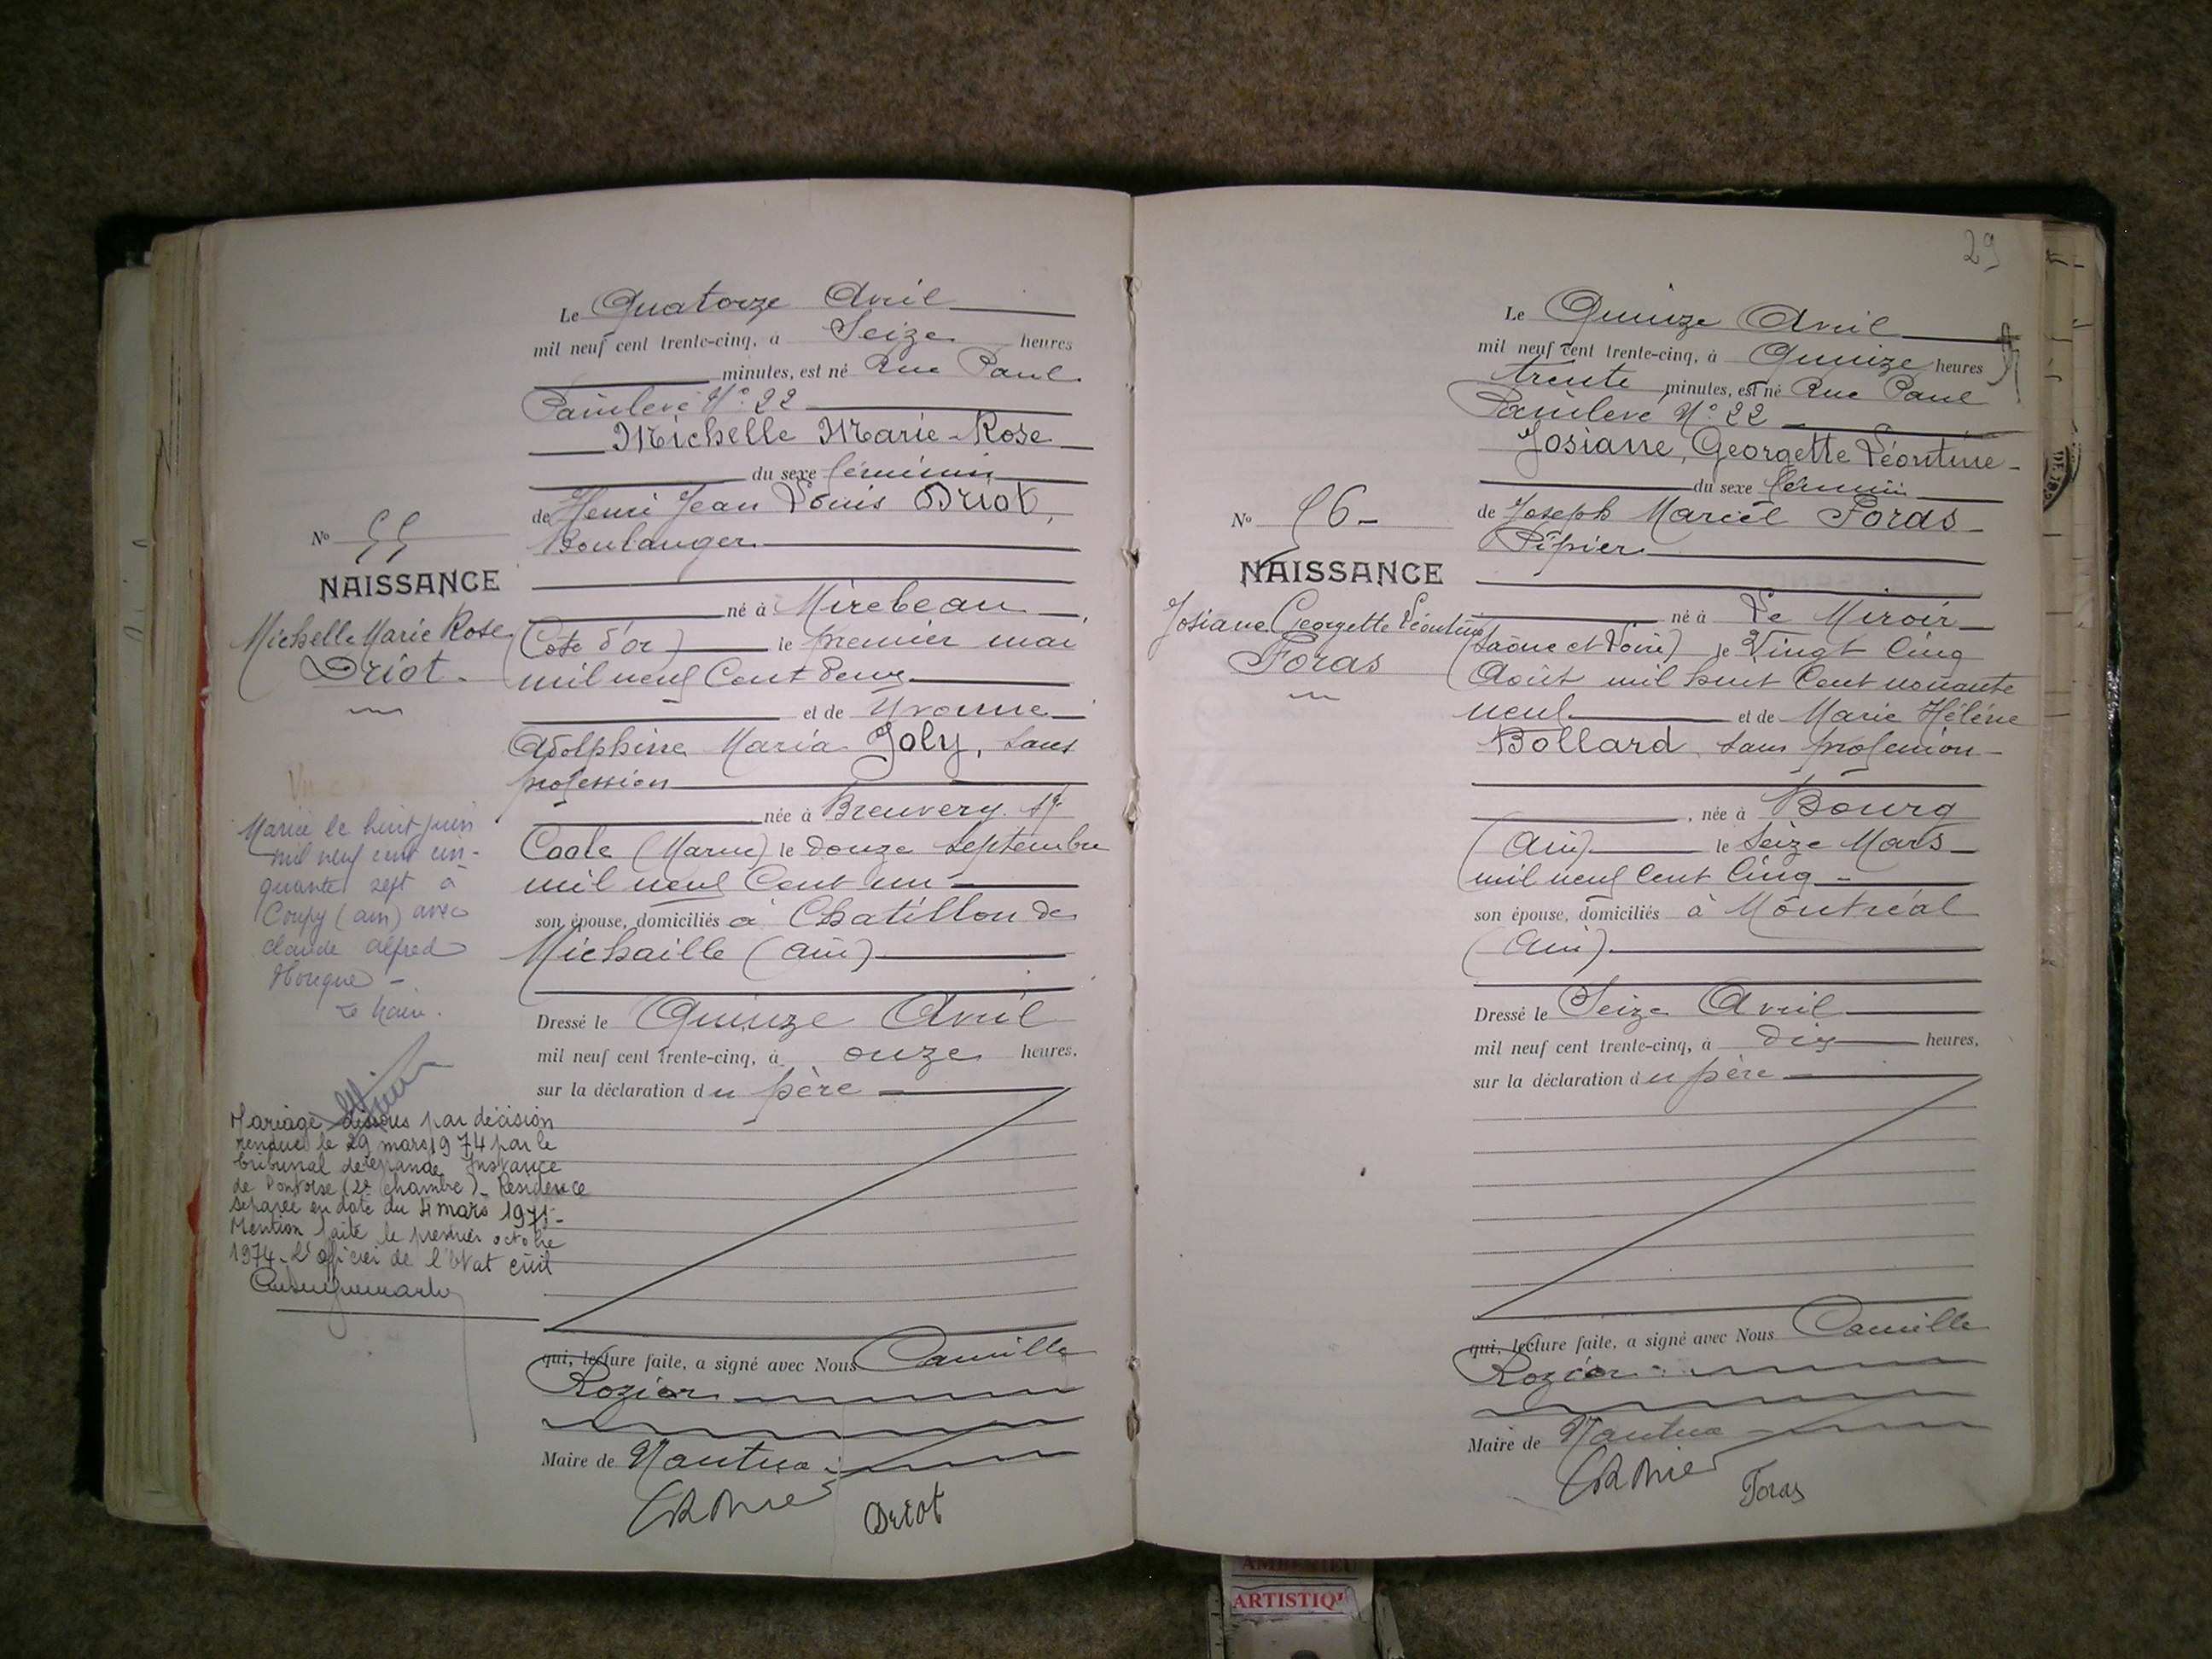 Le Quatorze Avril
mil neuf cent trente-cinq, à Seize heures
minutes, est né Rue Paul
Painlevé N° 22
Michelle Marie-Rose
du sexe féminin
de Henri Jean Louis Driot,
Boulanger
né à Mirebeau
(Côte d'or) le premier mai
mil neuf Cent deux
et de Yvonne
Adolphine Maria Joly, sans
profession
née à Breuvery sr
Coole (Marne) le douze septembre
mil neuf Cent un
son épouse, domiciliés à Chatillon de
Michaille (ain)
Dressé le Quinze Avril
mil neuf cent trente-cinq, à onze heures,
sur la déclaration du père
qui, lecture faite, a signé avec Nous Camille
Rozier
Maire de Nantua
Driot
N° 55
NAISSANCE
Michelle Marie Rose
Driot
Mariée le huit juin
mil neuf cent cin-
quante sept à
Coupy (ain) avec
claude alfred
Le Maire.
Mariage dissous par décision
rendue le 29 mars 1974 par le
tribunal de grande Instance
de Pontoise (2e chambre)_ Résidence
séparée en date du 4 mars 1971-
Mention faite le premier octobre
1974_L'officier de l'état civil
29
Le Quinze Avril
mil neuf cent trente-cinq, à Quinze heures
trente minutes, est né Rue Paul
Painlevé N° 22
Josiane, Georgette Léontine
du sexe féminin
de Joseph Marcel Foras
Pipier
né à Le Miroir
(Saône et Loire) le Vingt Cinq
Août mil huit Cent nonante
neuf et de Marie Hélène
Bollard, sans profession
, née à Bourg
(Ain) le Seize Mars
mil neuf Cent Cinq
son épouse, domiciliés à Montréal
(Ain)
Dressé le Seize Avril
mil neuf cent trente-cinq, à dix heures,
sur la déclaration du père
qui, lecture faite, a signé avec Nous Camille
Rozier
Maire de Nantua
Foras
N° 56
NAISSANCE
Josiane Georgette Léontine
Foras
ARTISTIQ